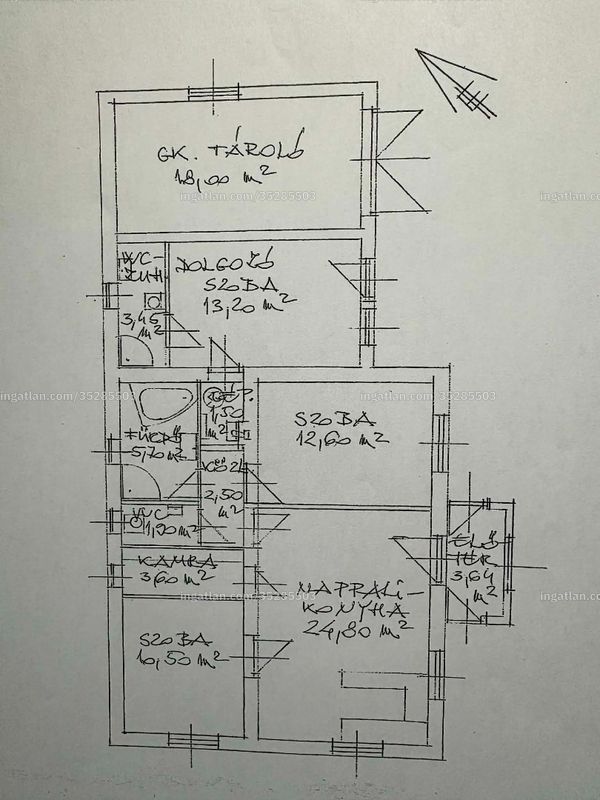 GK. TÁROLÓ
18,00 m²
ingatlan.com/35285503
ingatlan.com
WC-
ZUH
3,45
m²
DOLGOZÓ
SZOBA
13,20 m²
ingatlan.com/35285503
ingatlan.com/35285503
ingatlan.com/35285503
1,50
m²
SZOBA
12,60 m²
FÜRDŐ
5,70 m²
KÖZL
2,50
m²
WC
1,20 m²
KAMRA
3,60 m²
ingatlan.com/35285503
ingatlan.com
ELŐ
TÉR
3,64
m²
NAPPALI-
KONYHA
24,80 m²
SZOBA
10,50 m²